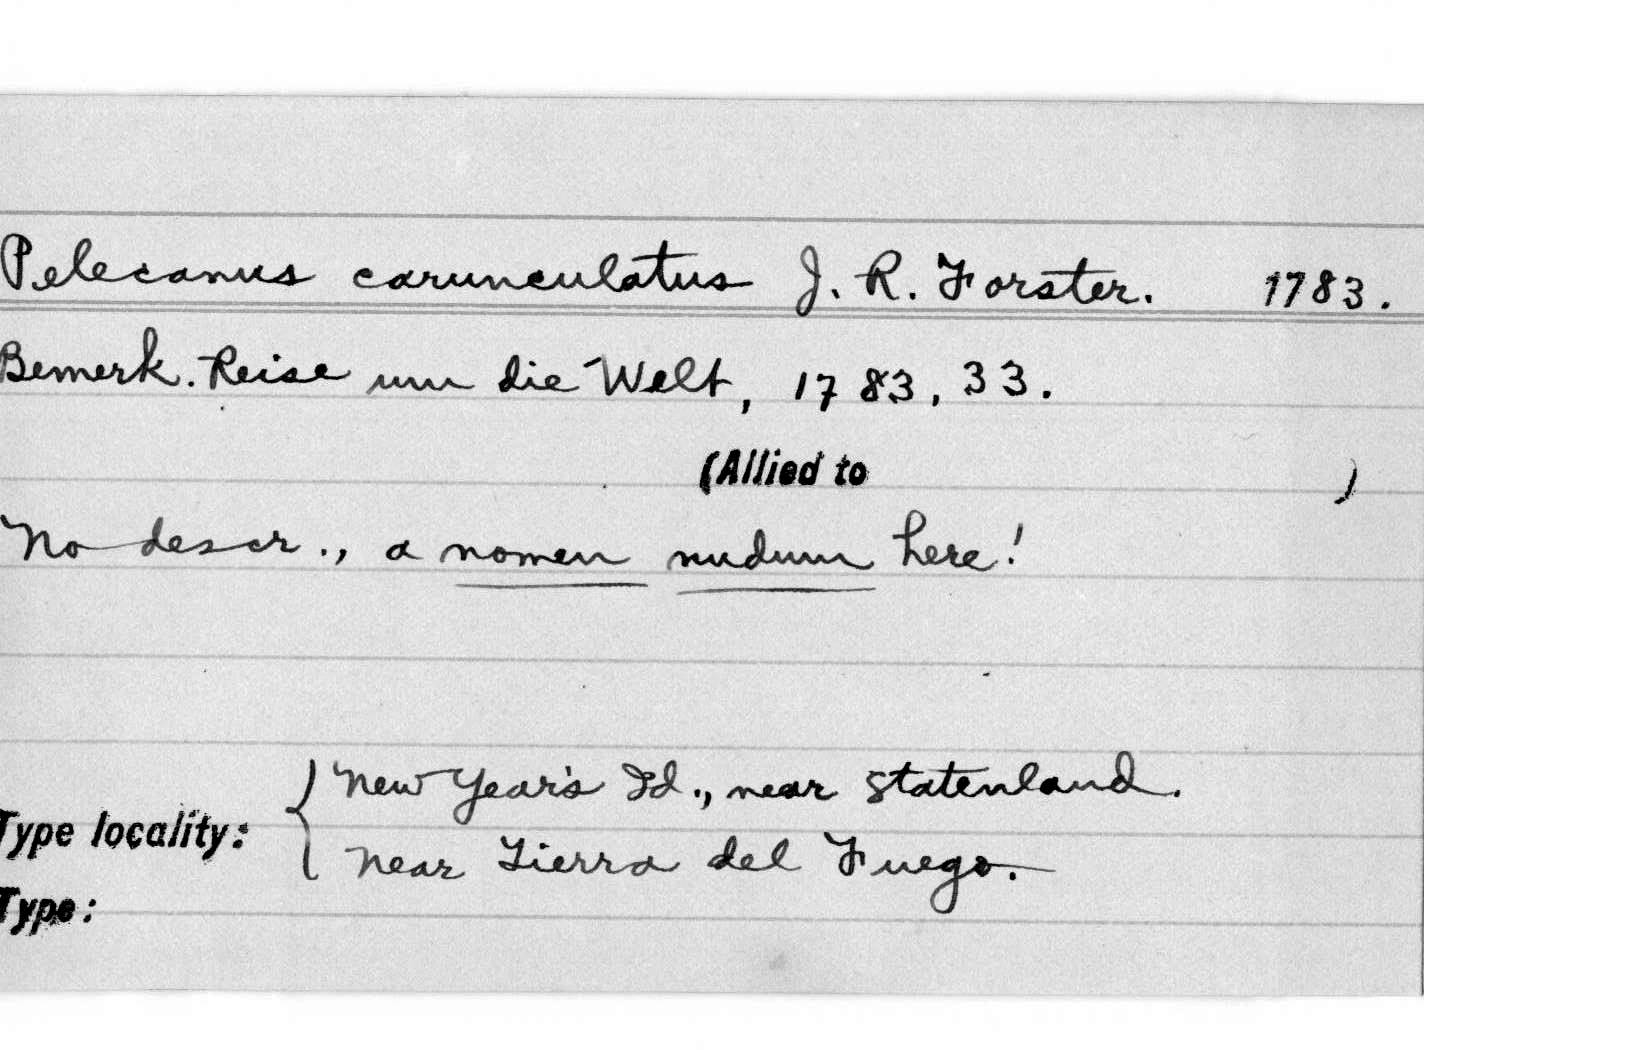 Pelecanus carunculatus J. R. Forster. 1783.
Bemerk. Reise um die Welt, 1783, 33.
(Allied to )
No descr., a nomen nudum here!
Type locality: { New Year's Id., near Statenland.
near Tierra del Fuego.
Type: